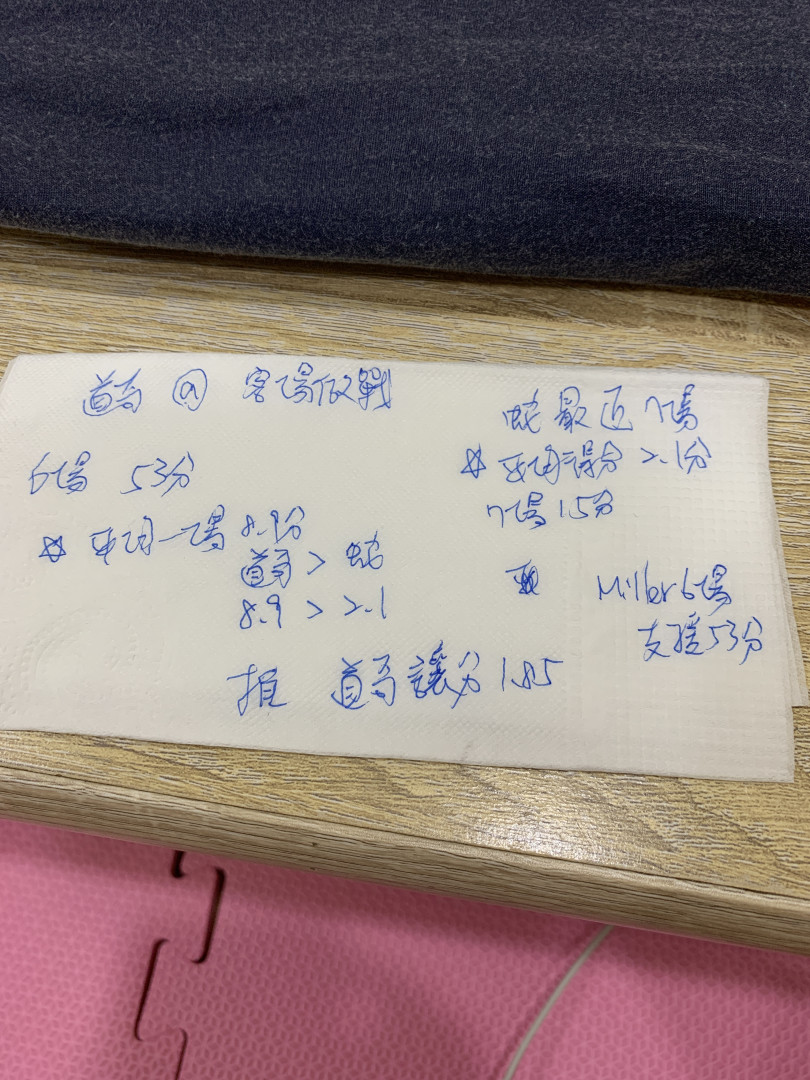 道奇 @ 客場作戰
6場 53分
☆ 平均一場 8.9分
道奇 > 蛇
8.9 > 2.1
蛇最近7場
☆ 平均得分 2.1分
7場15分
Miller 6場
支援53分
推 道奇讓分 1.85